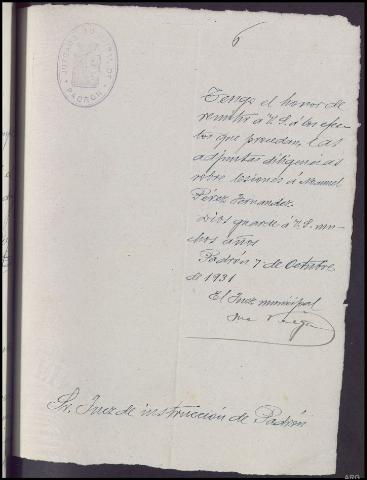 6
JUZGADO MUNICIPAL DE
PADRÓN
Tengo el honor de
remitir á V.S. á los efec-
tos que procedan, las
adjuntas diligencias
sobre lesiones á Manuel
Pérez Fernandez.
Dios guarde á V.S. mu-
chos años
Padrón 7 de Octubre
de 1931
El Juez municipal
Sr. Juez de instrucción de Padrón
ARG